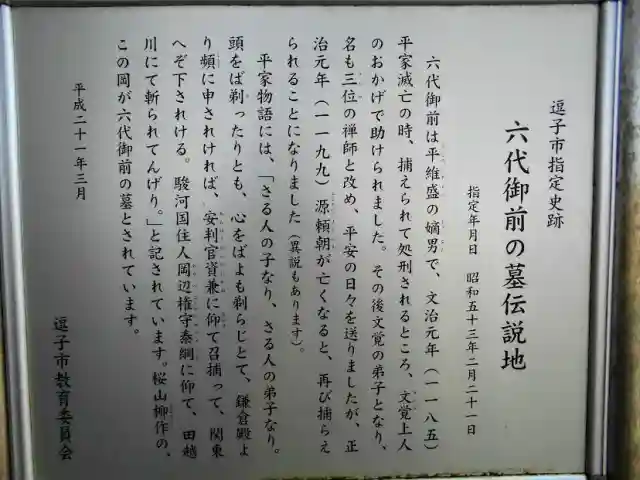 逗子市指定史跡
六代御前の墓伝説地
指定年月日　昭和五十三年二月二十一日
六代御前は平維盛の嫡男で、文治元年（一一八五）
平家滅亡の時、捕えられて処刑されるところ、文覚上人
のおかげで助けられました。その後文覚の弟子となり、
名も三位の禅師と改め、平安の日々を送りましたが、正
治元年（一一九九）源頼朝が亡くなると、再び捕らえ
られることになりました（異説もあります）。
平家物語には、「さる人の子なり、さる人の弟子なり。
頭をば剃ったりとも、心をばよも剃らじとて、鎌倉殿よ
り頻に申されければ、安判官資兼に仰て召捕って、関東
へぞ下されける。駿河国住人岡辺権守泰綱に仰て、田越
川にて斬られてんげり。」と記されています。桜山柳作の、
この岡が六代御前の墓とされています。
平成二十一年三月
逗子市教育委員会